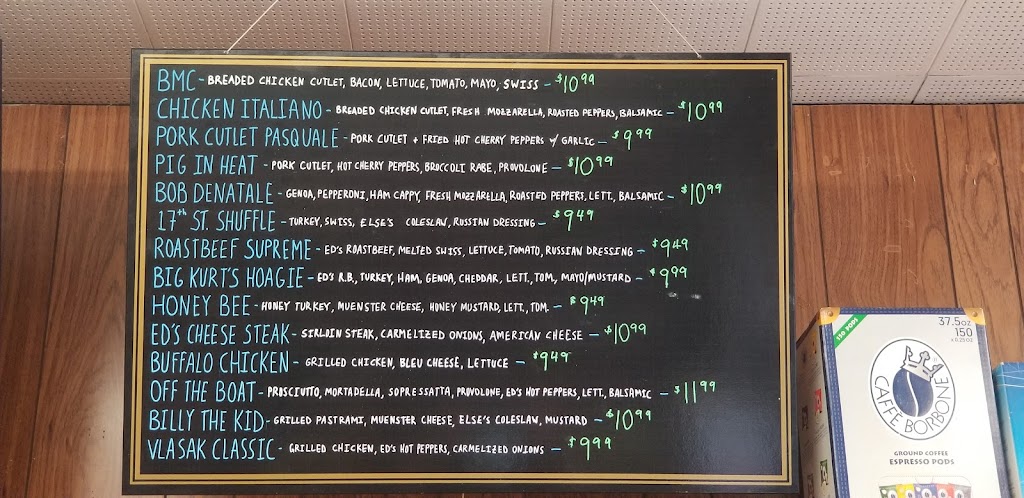 BMC - BREADED CHICKEN CUTLET, BACON, LETTUCE, TOMATO, MAYO, SWISS - $10.99
CHICKEN ITALIANO - BREADED CHICKEN CUTLET, FRESH MOZZARELLA, ROASTED PEPPERS, BALSAMIC - $10.99
PORK CUTLET PASQUALE - PORK CUTLET + FRIED HOT CHERRY PEPPERS w/ GARLIC - $9.99
PIG IN HEAT - PORK CUTLET, HOT CHERRY PEPPERS, BROCCOLI RABE, PROVOLONE - $10.99
BOB DENATALE - GENOA, PEPPERONI, HAM CAPPY, FRESH MOZZARELLA, ROASTED PEPPERS, LETT., BALSAMIC - $10.99
17th ST. SHUFFLE - TURKEY, SWISS, ELSE'S COLESLAW, RUSSIAN DRESSING - $9.49
ROASTBEEF SUPREME - ED'S ROASTBEEF, MELTED SWISS, LETTUCE, TOMATO, RUSSIAN DRESSING - $9.49
BIG KURT'S HOAGIE - ED'S R.B., TURKEY, HAM, GENOA, CHEDDAR, LETT., TOM., MAYO/MUSTARD - $9.99
HONEY BEE - HONEY TURKEY, MUENSTER CHEESE, HONEY MUSTARD, LETT., TOM. - $9.49
ED'S CHEESE STEAK - SIRLOIN STEAK, CARMELIZED ONIONS, AMERICAN CHEESE - $10.99
BUFFALO CHICKEN - GRILLED CHICKEN, BLEU CHEESE, LETTUCE - $9.49
OFF THE BOAT - PROSCIUTTO, MORTADELLA, SOPRESSATTA, PROVOLONE, ED'S HOT PEPPERS, LETT., BALSAMIC - $11.99
BILLY THE KID - GRILLED PASTRAMI, MUENSTER CHEESE, ELSE'S COLESLAW, MUSTARD - $10.99
VLASAK CLASSIC - GRILLED CHICKEN, ED'S HOT PEPPERS, CARMELIZED ONIONS - $9.99
150 PODS
37.5oz
150
x 0.25 OZ
CAFFÈ BORBONE
GROUND COFFEE
ESPRESSO PODS